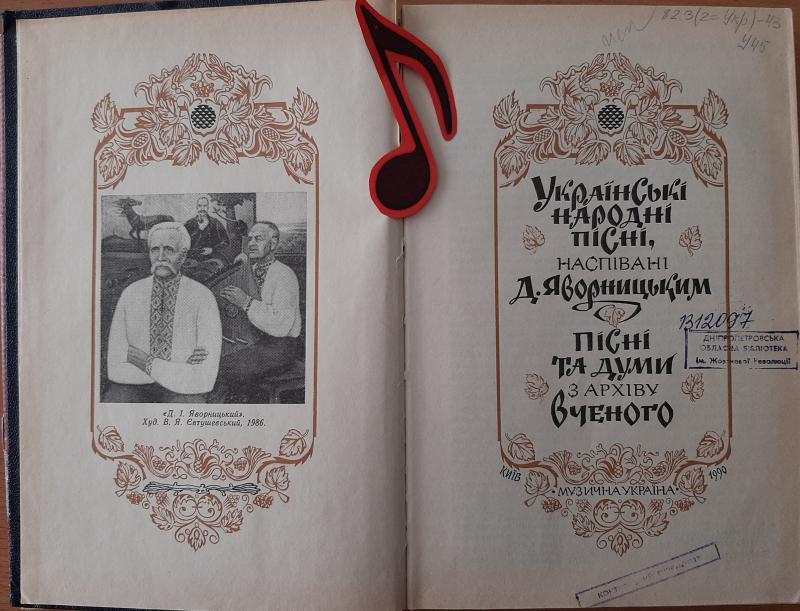 «Д. І. Яворницький».
Худ. В. Я. Євтушевський, 1986.
82.3(2=Укр)-43
У45
Українські
народні
пісні,
наспівані
Д. Яворницьким
Пісні
та думи
з архіву
вченого
В12097
ДНІПРОПЕТРОВСЬКА
ОБЛАСНА БІБЛІОТЕКА
ім. Жовтневої Революції
КИЇВ
1990
• МУЗИЧНА УКРАЇНА •